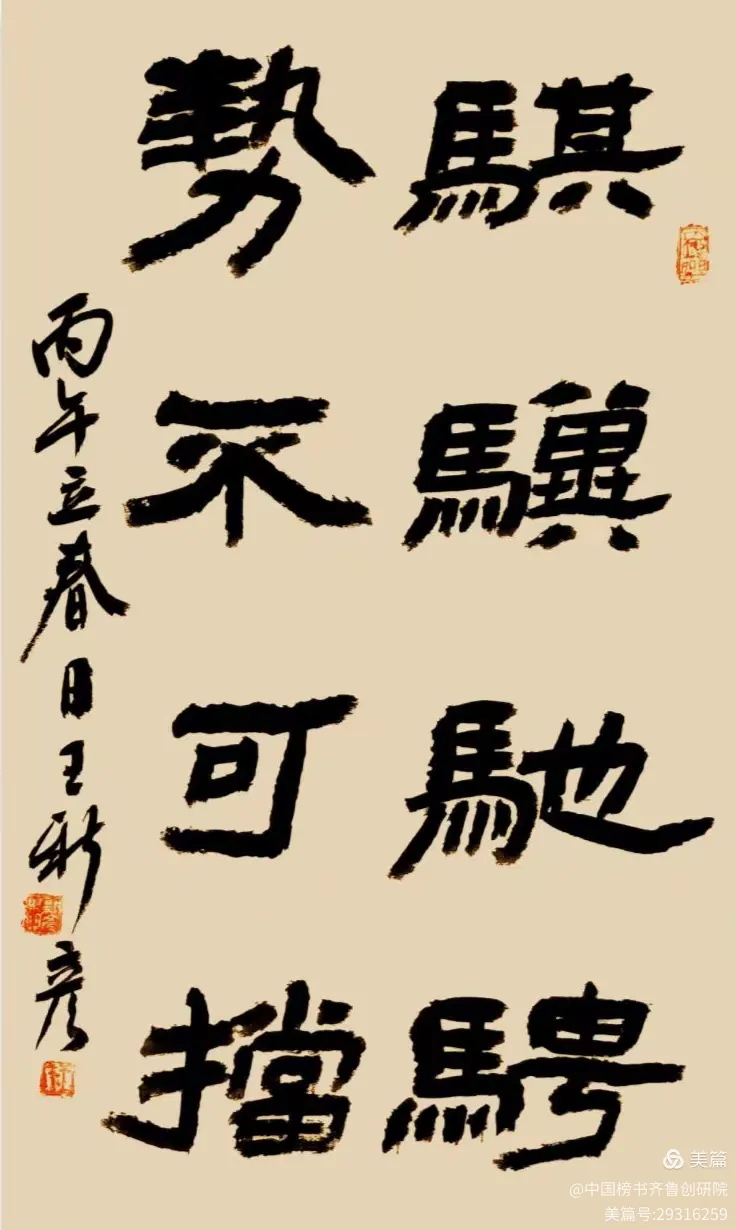 騏驥馳騁
勢不可擋
丙午立春日王新彦
美篇
@中国榜书齐鲁创研院
美篇号:29316259